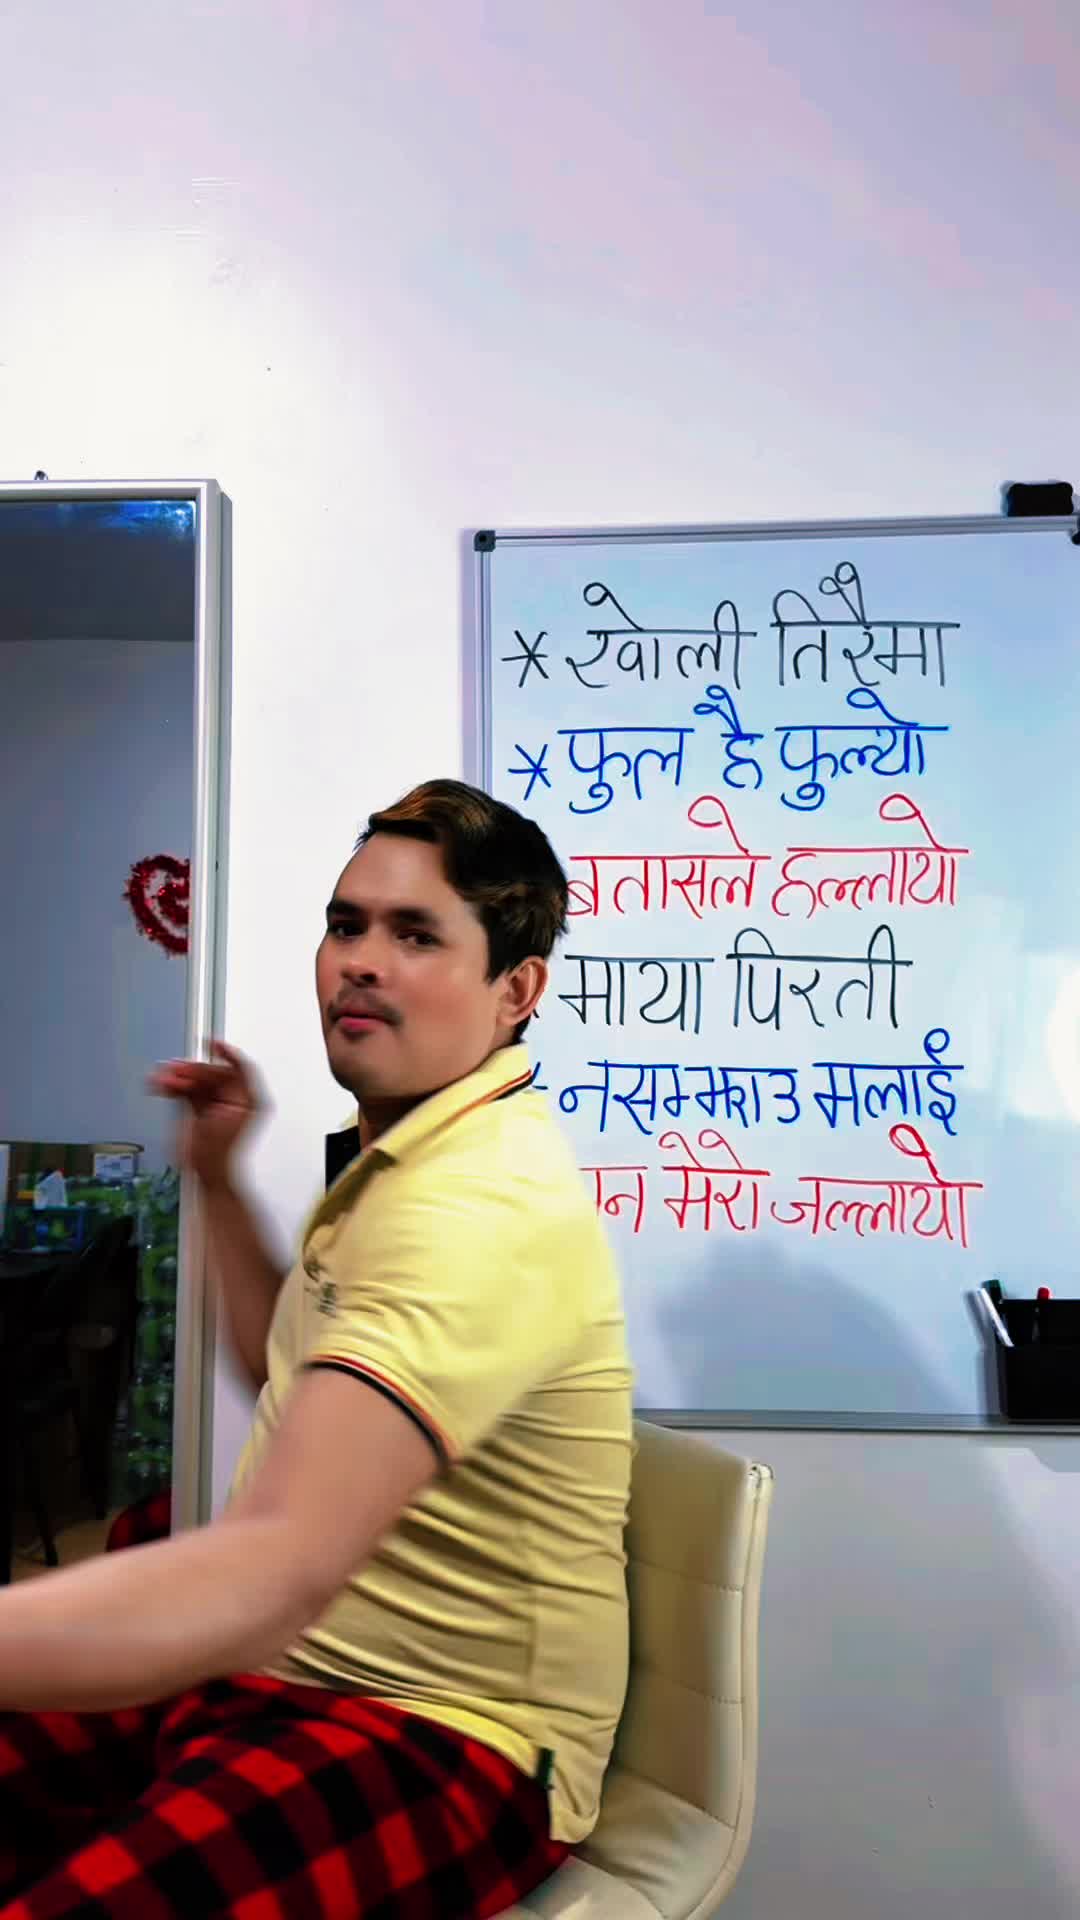 * खोली तिरैमा
* फुल है फुल्यो
बतासले हल्लायो
माया पिरती
* नसम्झाउ मलाई
मेरो जल्लायो